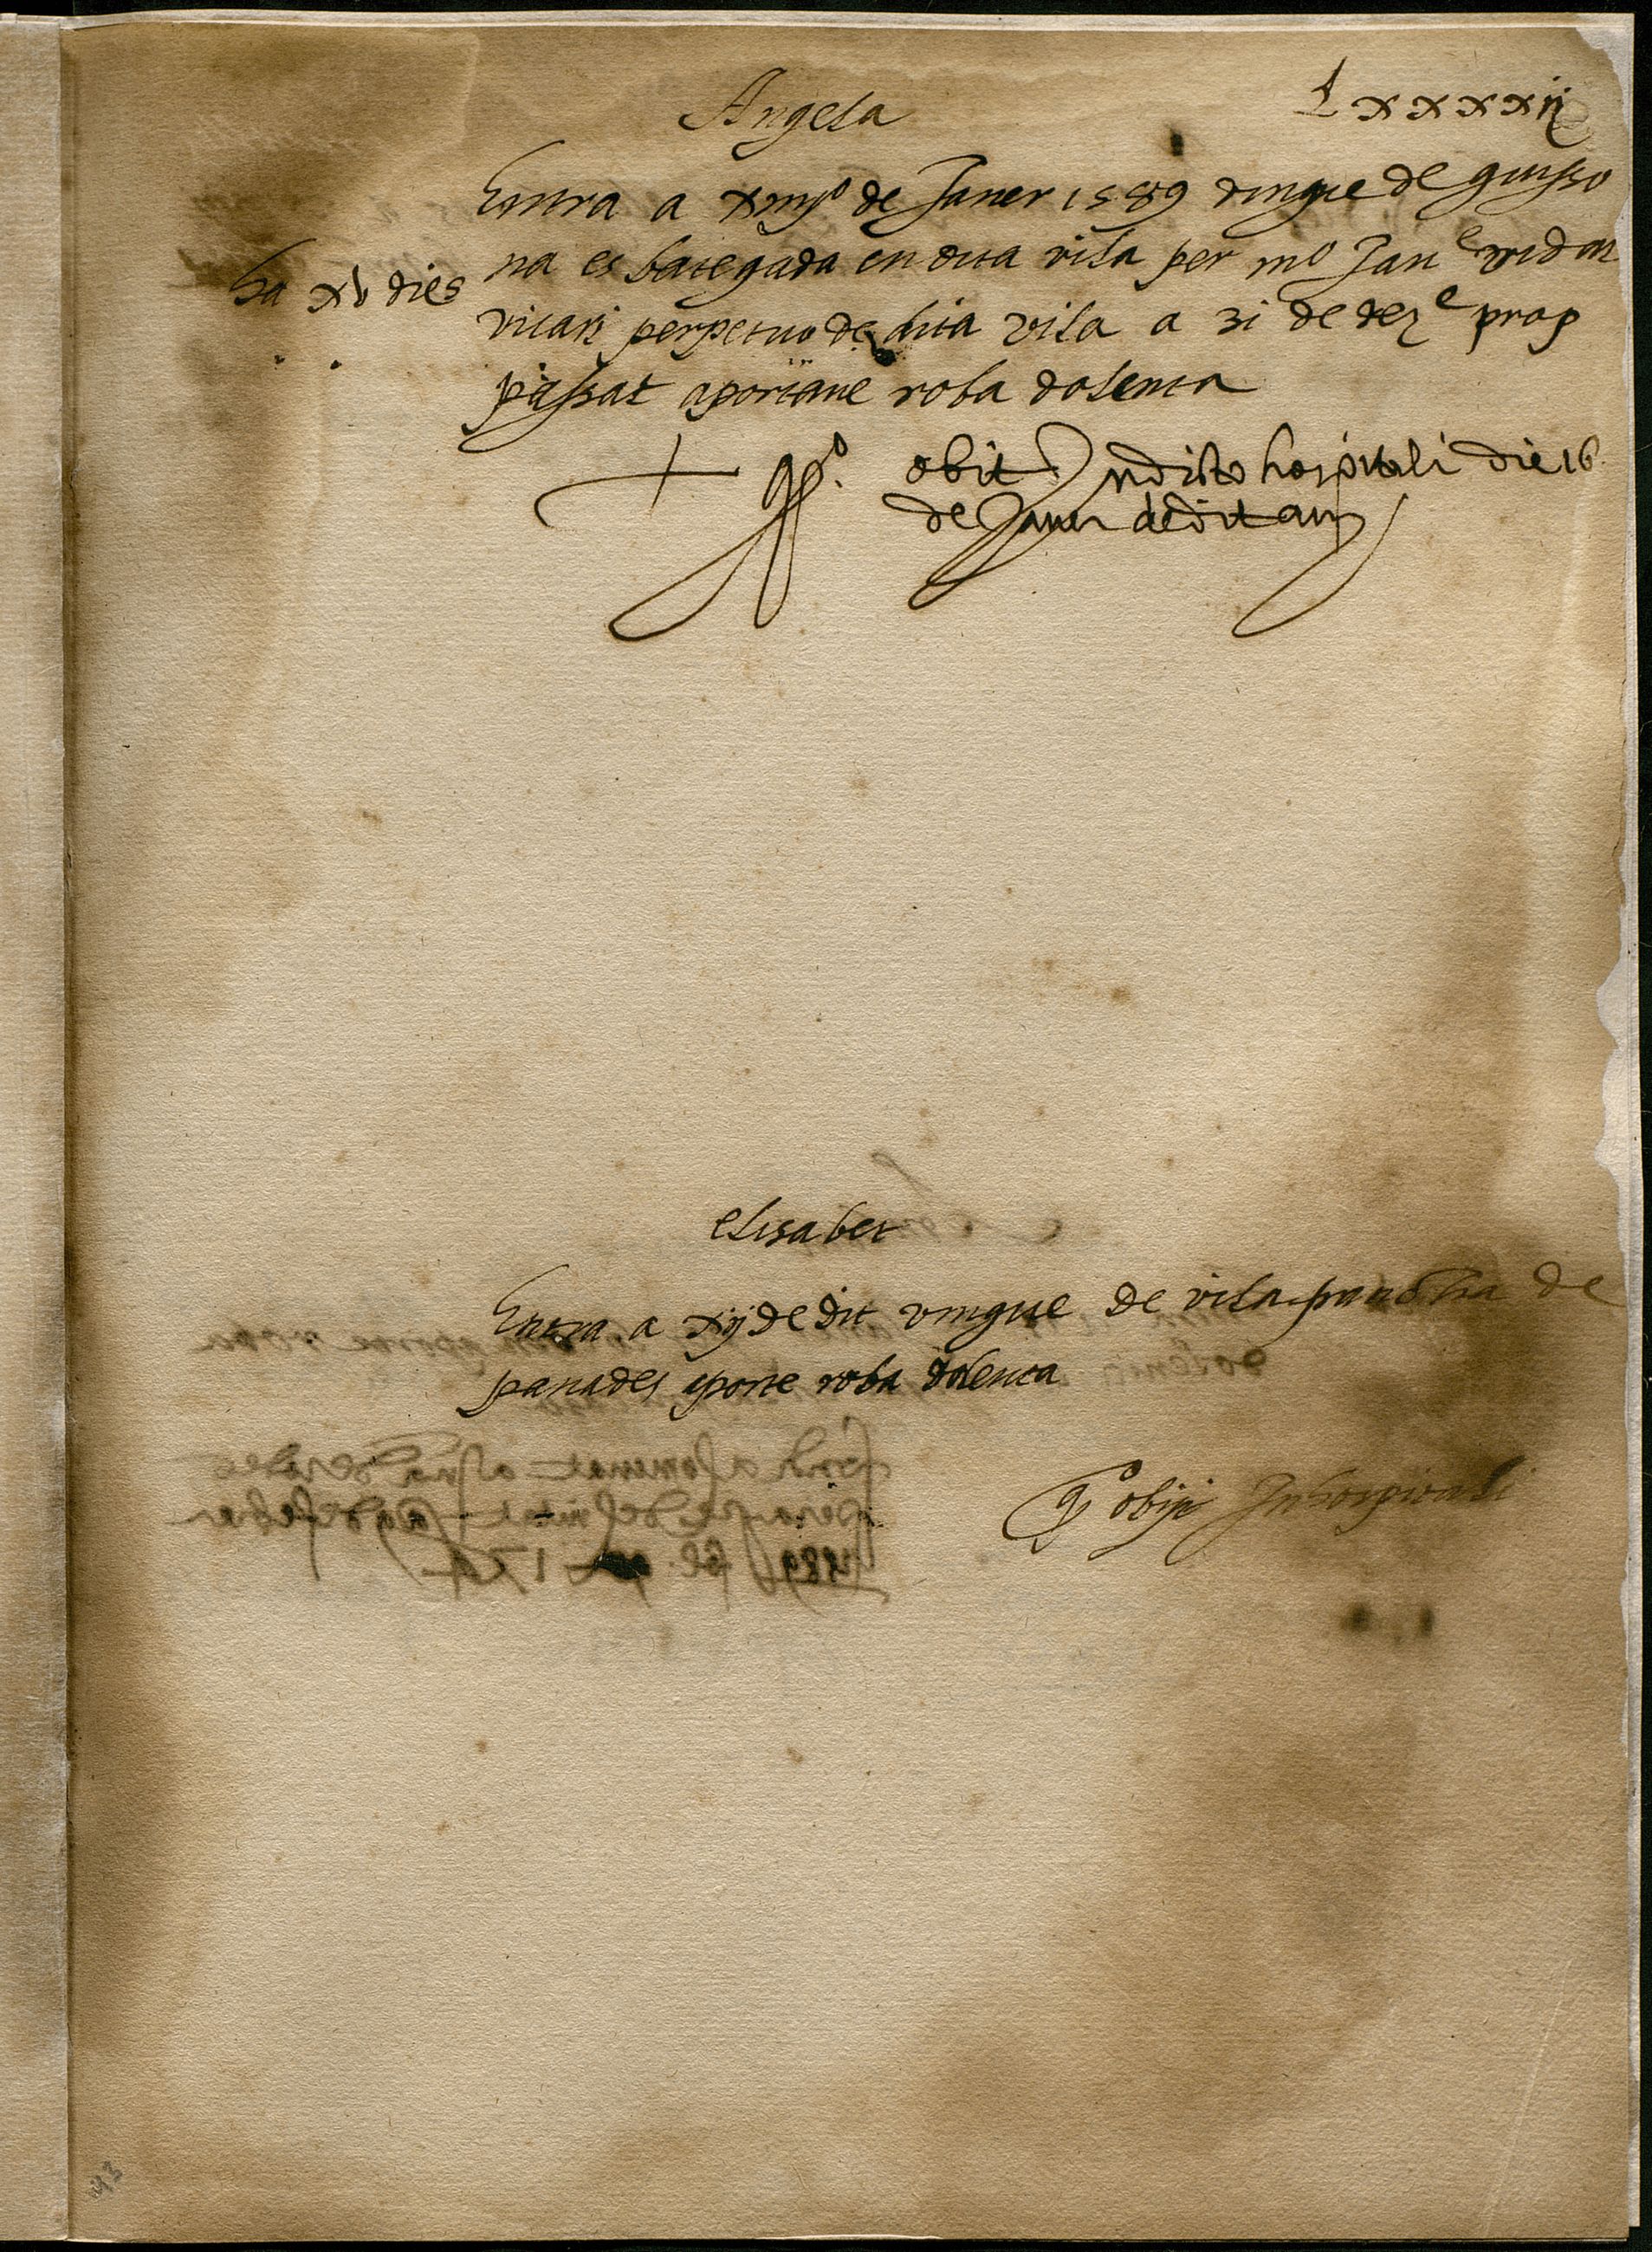 Lxxxxij
Angela
Entra a xiiijº de Janer 1589 vingue de guisso
na es bategada en dita vila per mº Jau^e vidal
ha xv dies
vicari perpetuo de dita vila a 31 de dez^e prop
passat aportave roba dolenta
obit In dicto hospitali die 16
de Janer de dit any
elisabet
Entra a xij de dit vingue de vilafrancha de
panades aporte roba dolenta
obijt In hospitali